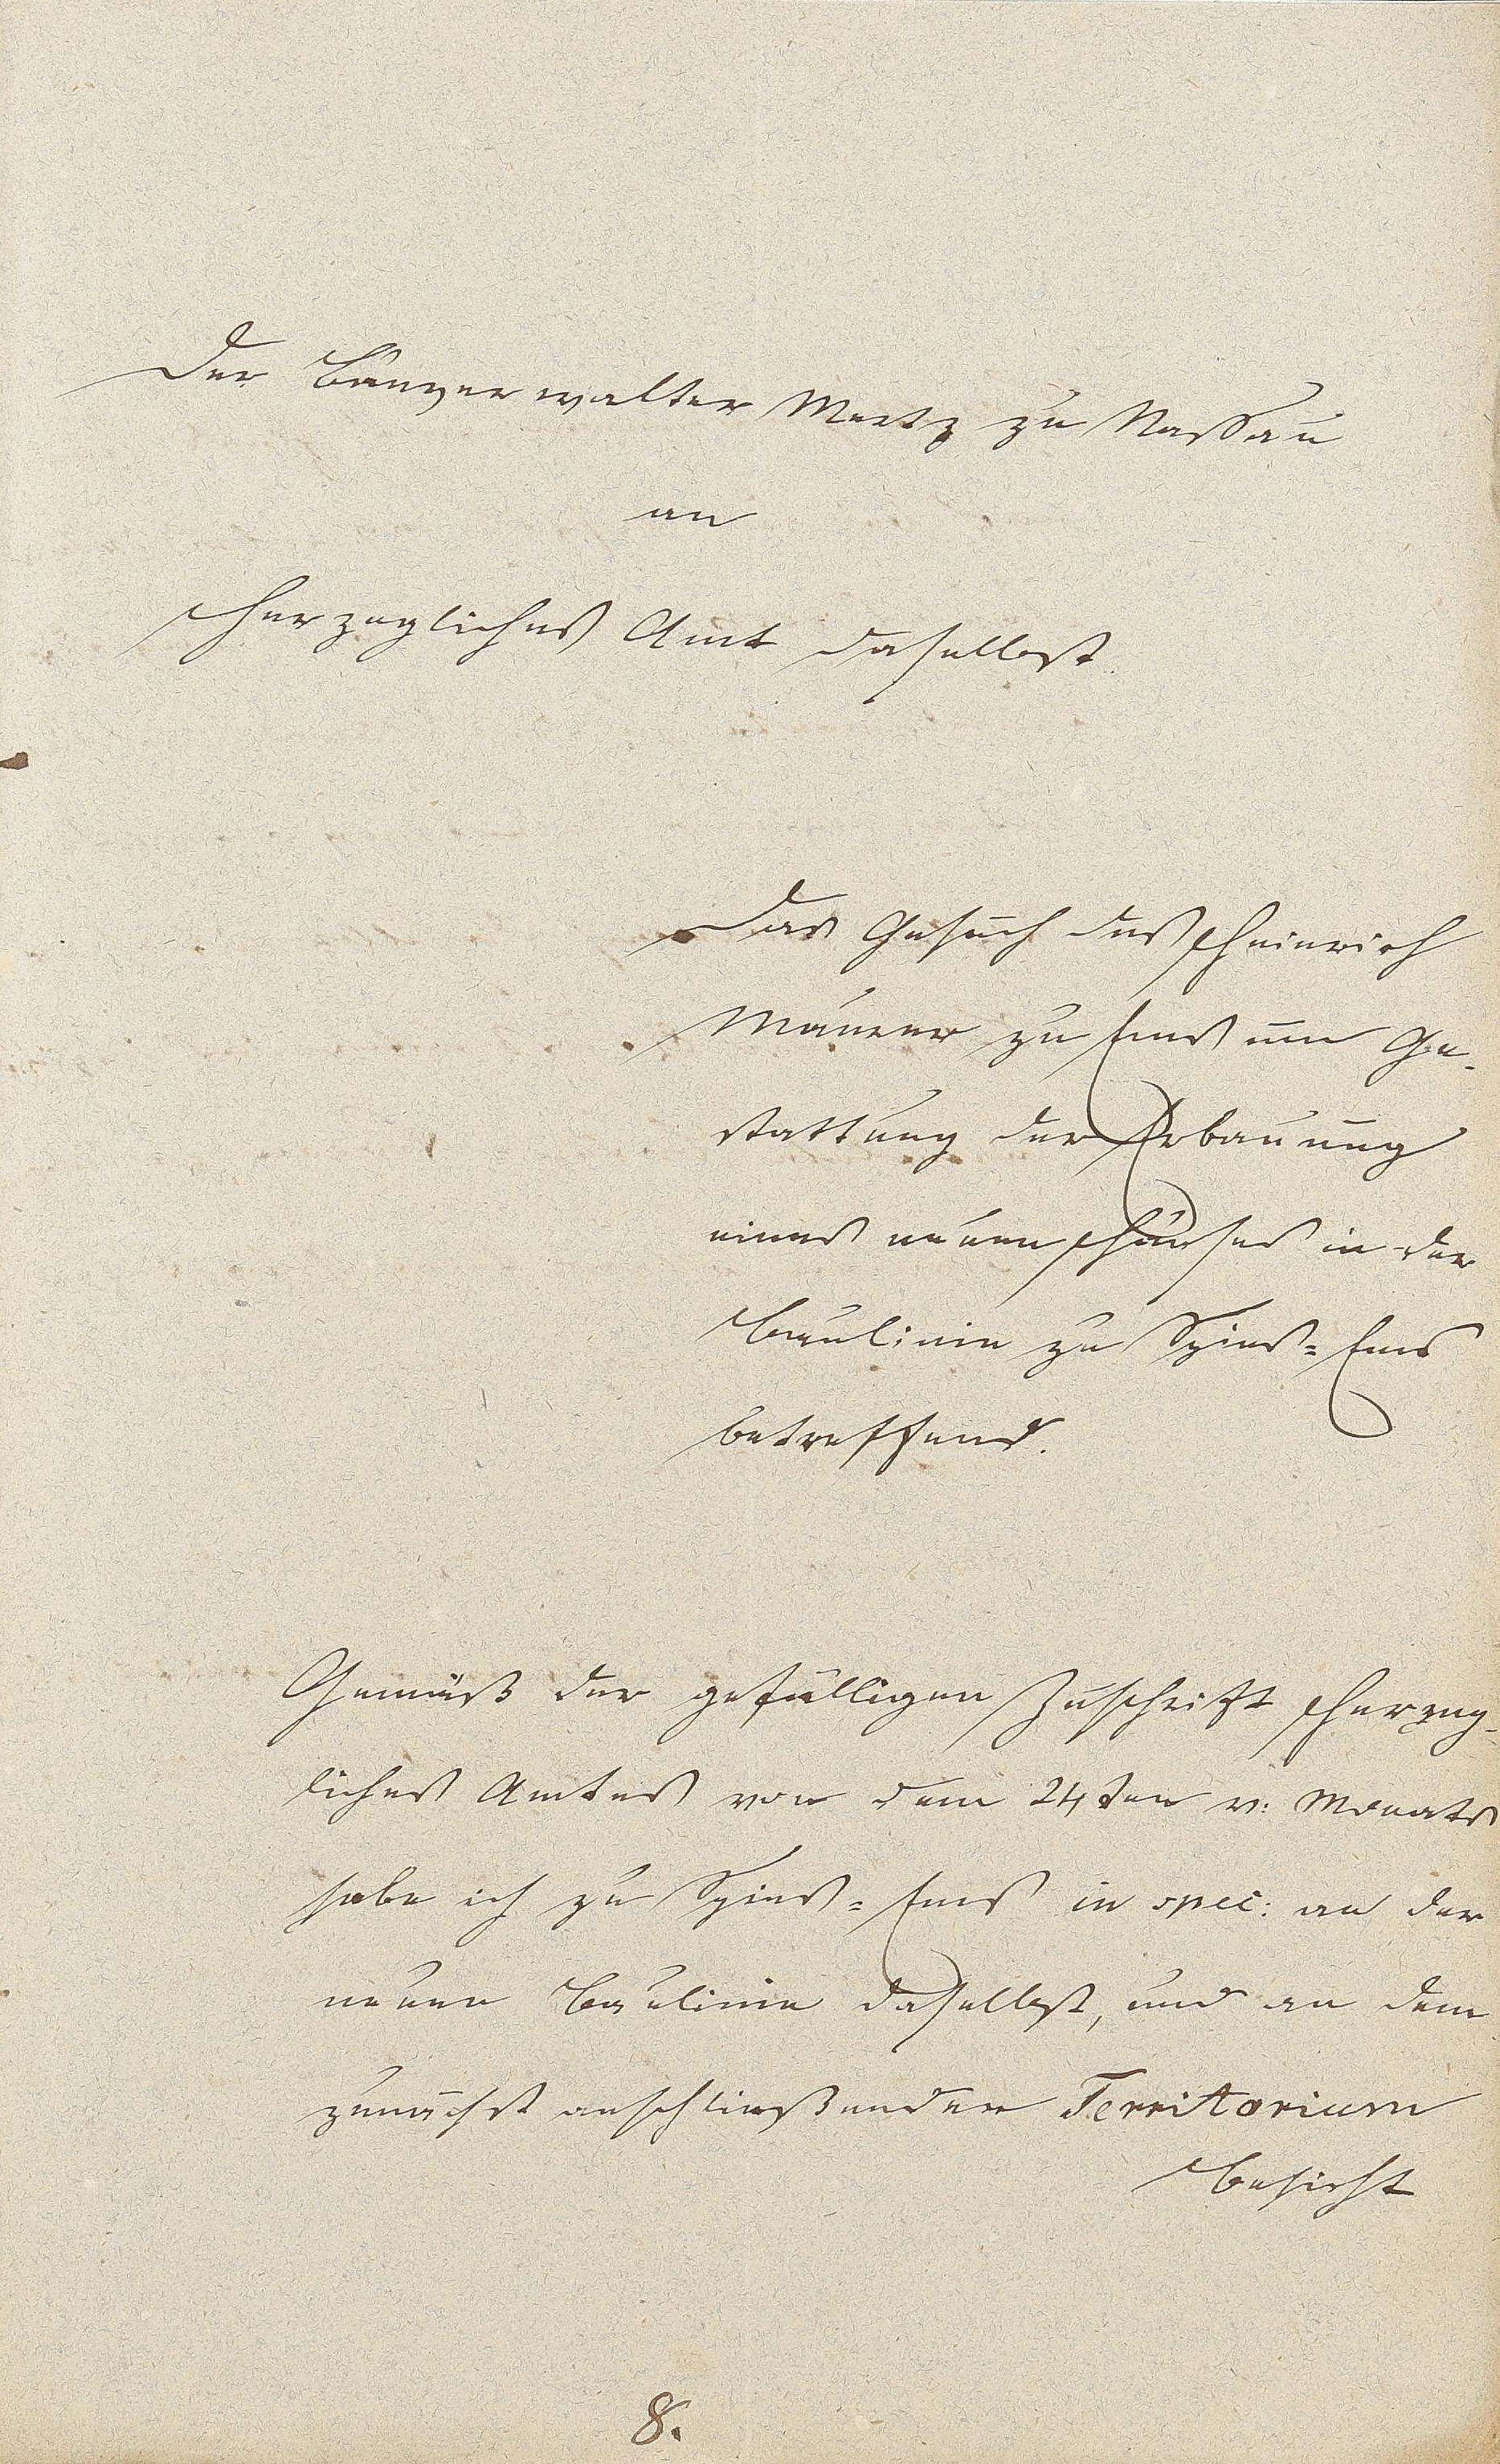 Der Bauverwalter Mertz zu Nassau
an
Herzogliches Amt daselbst.
Das Gesuch des Heinrich
Maurer zu Ems um Ge-
stattung der Erbauung
eines neuen Hauses in der
Baulinie zu Spies-Ems
betreffend.
Gemäß der gefälligen Zuschrift Herzog-
liches Amtes von dem 24ten v: Monats
habe ich zu Spies-Ems in spec: an der
neuen Baulinie daselbst, und an dem
zunächst anschließenden Territorium
Besicht
8.